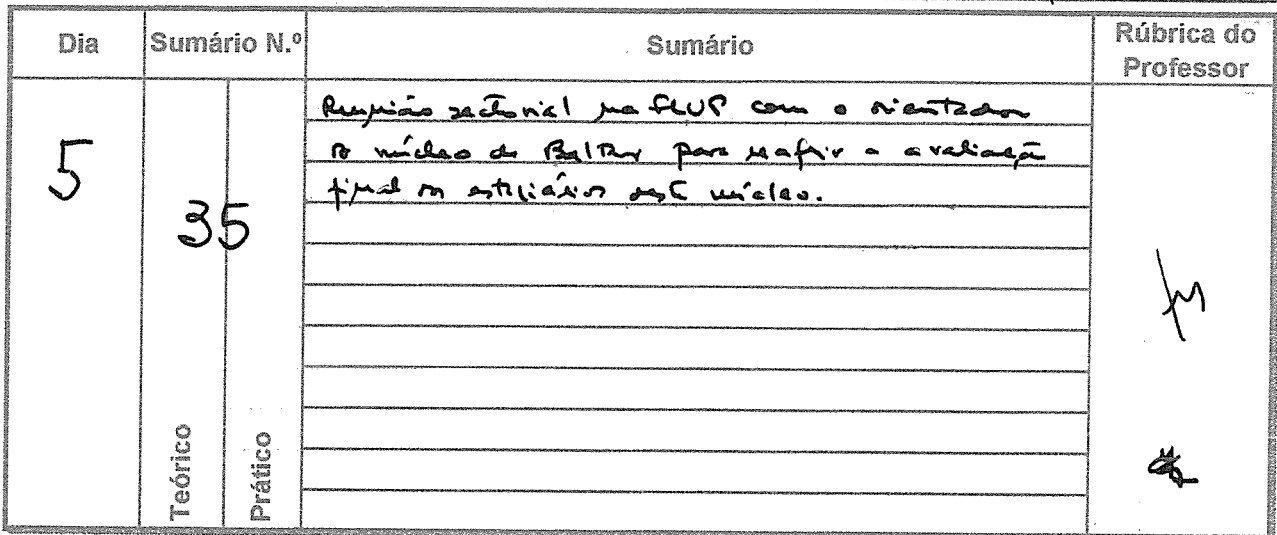 Dia
Sumário N.º
Sumário
Rúbrica do
Professor
5
35
Reunião sectorial na FLUP com o orientador
do núcleo de Baltar para aferir a avaliação
final dos estagiários deste núcleo.
Teórico
Prático